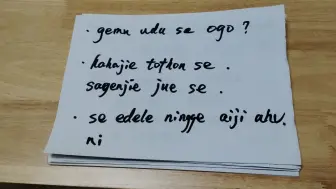 · gemu udu se ogo ?
· hahajie tofhon se .
sagenjie jue se .
· se edele ningge aiji ahv.
ni